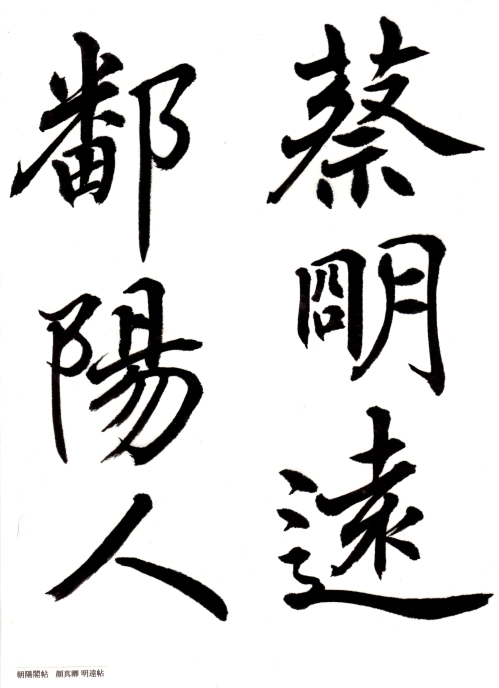 蔡明遠
鄱陽人
朝陽閣帖　顔真卿 明遠帖